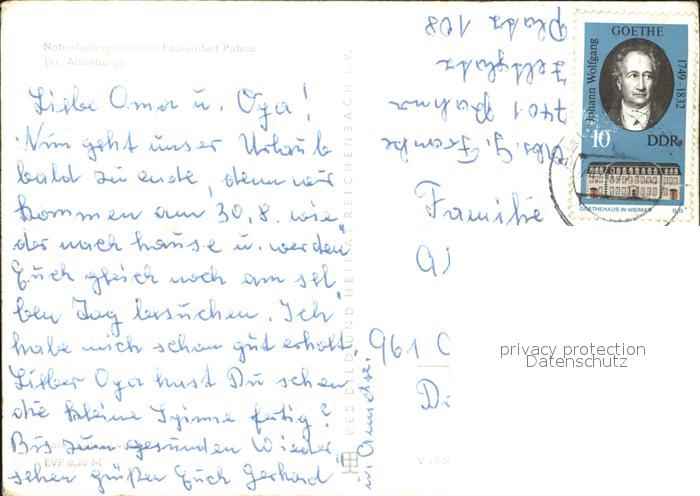 Naherholungszentrum Fockendorf-Pahna
(Kr. Altenburg)
Liebe Oma u. Opa!
Nun geht unser Urlaub
bald zu ende, denn wir
kommen am 30.8. wie
der nach hause u. werden
Euch gleich noch am sel
ben Tag besuchen. Ich
habe mich schon gut erholt.
Lieber Opa hast Du schon
die kleine Spinne fertig?
Bis zum gesunden Wieder
sehen grüßen Euch Gerhard
u. Annchse.
EVP 0,20 M
VEB BILD UND HEIMAT REICHENBACH I. V.
V 11
Abs. G. Franke
7401 Pahna
Zeltplatz
Platz 108
Familie
961
Johann Wolfgang
GOETHE
1749-1832
10
DDR
GOETHEHAUS IN WEIMAR
privacy protection
Datenschutz